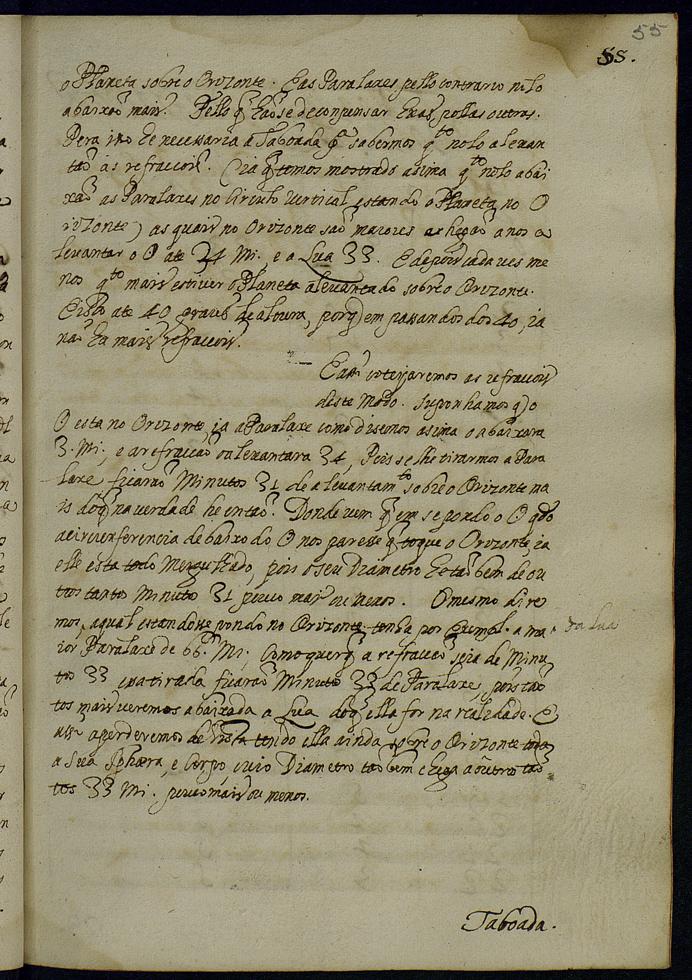 55
55.
o Planeta sobre o Orizonte. E as Paralaxes pello contrario nolo
abaixaõ mais. Pello q̃ haõ se de conpensar huãs pollas outras.
Pera isso he necessaria a Taboada p.ª sabermos q.to nolo alevan
taõ as refraccois. (ia q̃ temos mostrado asima q.to nolo abai
xaõ as Paralaxes no Circulo vertical estando o Planeta no O
rizonte) as quais no Orizonte saõ maiores e chegaõ a nos a
levantar o O até 34 Mi. e a Lua 33. E depois cada ves me
nos q.to mais estiver o Planeta alevantado sobre o Orizonte.
E isto ate 40 graus de altura, porq̃ em passando dos 40, ia
naõ ha mais refraccois.
E assi cotejaremos as refraccois
deste modo. Suponhamos q̃ o
O esta no Orizonte, ia a Paralaxe como disemos asima o abaixara
3 Mi, e a refraccaõ o alevantara 34, Pois se lhe tirarmos a Para
laxe ficaraõ Minutos 31 de alevantam.to sobre o Orizonte ma
is do q̃ na verdade he entaõ. Donde vem q̃ em se pondo o O q.do
a circunferencia de baixo do O nos paresse q̃ toque o Orizonte, ia
elle esta todo Mergulhado, pois o seu Diametro he taõ bem de ou
tros tantos Minutos 31 pouco mais ou menos. O mesmo dire
mos, a qual estandose pondo no Orizonte tenha por Exempl. a ma
da Lua
ior Paralaxe de 66. Mi, Como quer q̃ a refraccaõ seja de Minu
tos 33 esta tirada ficaraõ Minutos 33 de Paralaxe, pois tan
tos mais veremos abaixada a Lua do q̃ ella for na realidade. E
assi a perderemos de vista tendo ella ainda sobre o Orizonte toda
a sua Sphæra, e Corpo cuio Diametro taõ bem chega a outros tan
tos 33 Mi. pouco mais ou menos.
Taboada.